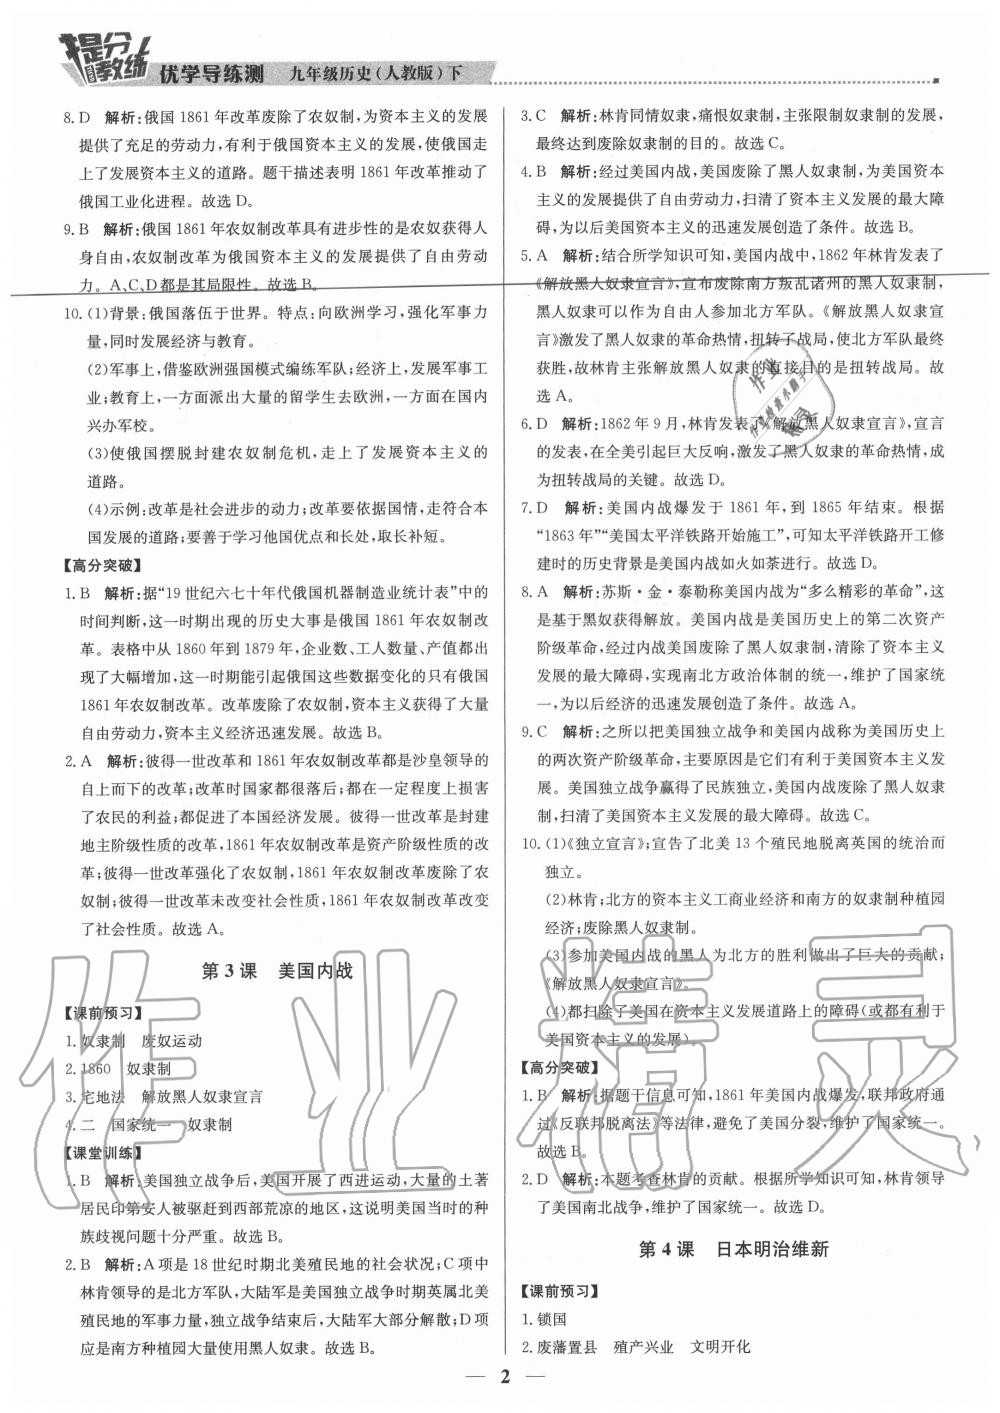 提分教练 优学导练测 九年级历史(人教版)下
8. D 解析:俄国 1861 年改革废除了农奴制,为资本主义的发展
提供了充足的劳动力,有利于俄国资本主义的发展,使俄国走
上了发展资本主义的道路。题干描述表明 1861 年改革推动了
俄国工业化进程。故选 D。
9. B 解析:俄国 1861 年农奴制改革具有进步性的是农奴获得人
身自由,农奴制改革为俄国资本主义的发展提供了自由劳动
力。A、C、D 都是其局限性。故选 B。
10. (1)背景:俄国落伍于世界。特点:向欧洲学习,强化军事力
量,同时发展经济与教育。
(2)军事上,借鉴欧洲强国模式编练军队;经济上,发展手工
业;教育上,一方面派出大量的留学生去欧洲,一方面在国内
兴办军校。
(3)使俄国摆脱封建农奴制危机,走上了发展资本主义的
道路。
(4)示例:改革是社会进步的动力;改革要依据国情,走符合本
国发展的道路;要善于学习他国优点和长处,取长补短。
【高分突破】
1. B 解析:据“19 世纪六七十年代俄国机器制造业统计表”中的
时间判断,这一时期出现的历史大事是俄国 1861 年农奴制改
革。表格中从 1860 年到 1879 年,企业数、工人数量、产值都出
现了大幅增加,这一时期能引起俄国这些数据变化的只有俄国
1861 年农奴制改革。改革废除了农奴制,资本主义获得了大量
自由劳动力,资本主义经济迅速发展。故选 B。
2. A 解析:彼得一世改革和 1861 年农奴制改革都是沙皇领导的
自上而下的改革;改革时国家都很落后;都在一定程度上损害
了农民的利益;都促进了本国经济发展。彼得一世改革是封建
地主阶级性质的改革,1861 年农奴制改革是资产阶级性质的改
革;彼得一世改革强化了农奴制,1861 年农奴制改革废除了农
奴制;彼得一世改革未改变社会性质,1861 年农奴制改革改变
了社会性质。故选 A。
第 3 课 美国内战
【课前预习】
1. 奴隶制 废奴运动
2. 1860 奴隶制
3. 宅地法 解放黑人奴隶宣言
4. 二 国家统一 奴隶制
【课堂训练】
1. B 解析:美国独立战争后,美国开展了西进运动,大量的土著
居民印第安人被驱赶到西部荒凉的地区,这说明美国当时的种
族歧视问题十分严重。故选 B。
2. B 解析:A 项是 18 世纪时期北美殖民地的社会状况;C 项中
林肯领导的是北方军队,大陆军是美国独立战争时期英属北美
殖民地的军事力量,独立战争结束后,大陆军大部分解散;D 项
应是南方种植园大量使用黑人奴隶。故选 B。
3. C 解析:林肯同情奴隶,痛恨奴隶制,主张限制奴隶制的发展,
最终达到废除奴隶制的目的。故选 C。
4. B 解析:经过美国内战,美国废除了黑人奴隶制,为美国资本
主义的发展提供了自由劳动力,扫清了资本主义发展的最大障
碍,为以后美国资本主义的迅速发展创造了条件。故选 B。
5. A 解析:结合所学知识可知,美国内战中,1862 年林肯发表了
《解放黑人奴隶宣言》,宣布废除南方叛乱诸州的黑人奴隶制,
黑人奴隶可以作为自由人参加北方军队。《解放黑人奴隶宣
言》激发了黑人奴隶的革命热情,扭转了战局,使北方军队最终
获胜,故林肯主张解放黑人奴隶的直接目的是扭转战局。故
选 A。
6. D 解析:1862 年 9 月,林肯发表了《解放黑人奴隶宣言》,宣言
的发表,在全美引起巨大反响,激发了黑人奴隶的革命热情,成
为扭转战局的关键。故选 D。
7. D 解析:美国内战爆发于 1861 年,到 1865 年结束。根据
“1863 年”“美国太平洋铁路开始施工”,可知太平洋铁路开工修
建时的历史背景是美国内战如火如荼进行。故选 D。
8. A 解析:苏斯·金·泰勒称美国内战为“多么精彩的革命”,这
是基于黑奴获得解放。美国内战是美国历史上的第二次资产
阶级革命,经过内战美国废除了黑人奴隶制,清除了资本主义
发展的最大障碍,实现南北方政治体制的统一,维护了国家统
一,为以后经济的迅速发展创造了条件。故选 A。
9. C 解析:之所以把美国独立战争和美国内战称为美国历史上
的两次资产阶级革命,主要原因是它们有利于美国资本主义发
展。美国独立战争赢得了民族独立,美国内战废除了黑人奴隶
制,扫清了美国资本主义发展的最大障碍。故选 C。
10. (1)《独立宣言》;宣告了北美 13 个殖民地脱离英国的统治而
独立。
(2)林肯;北方的资本主义工商业经济和南方的奴隶制种植园
经济;废除黑人奴隶制。
(3)参加美国内战的黑人为北方的胜利做出了巨大的贡献;
《解放黑人奴隶宣言》。
(4)都扫除了美国在资本主义发展道路上的障碍(或都有利于
美国资本主义的发展)。
【高分突破】
1. B 解析:据题干信息可知,1861 年美国内战爆发,联邦政府通
过《反联邦脱离法》等法律,避免了美国分裂,维护了国家统一。
故选 B。
2. D 解析:本题考查林肯的贡献。根据所学知识可知,林肯领导
了美国南北战争,维护了国家统一。故选 D。
第 4 课 日本明治维新
【课前预习】
1. 锁国
2. 废藩置县 殖产兴业 文明开化
2
作业精灵